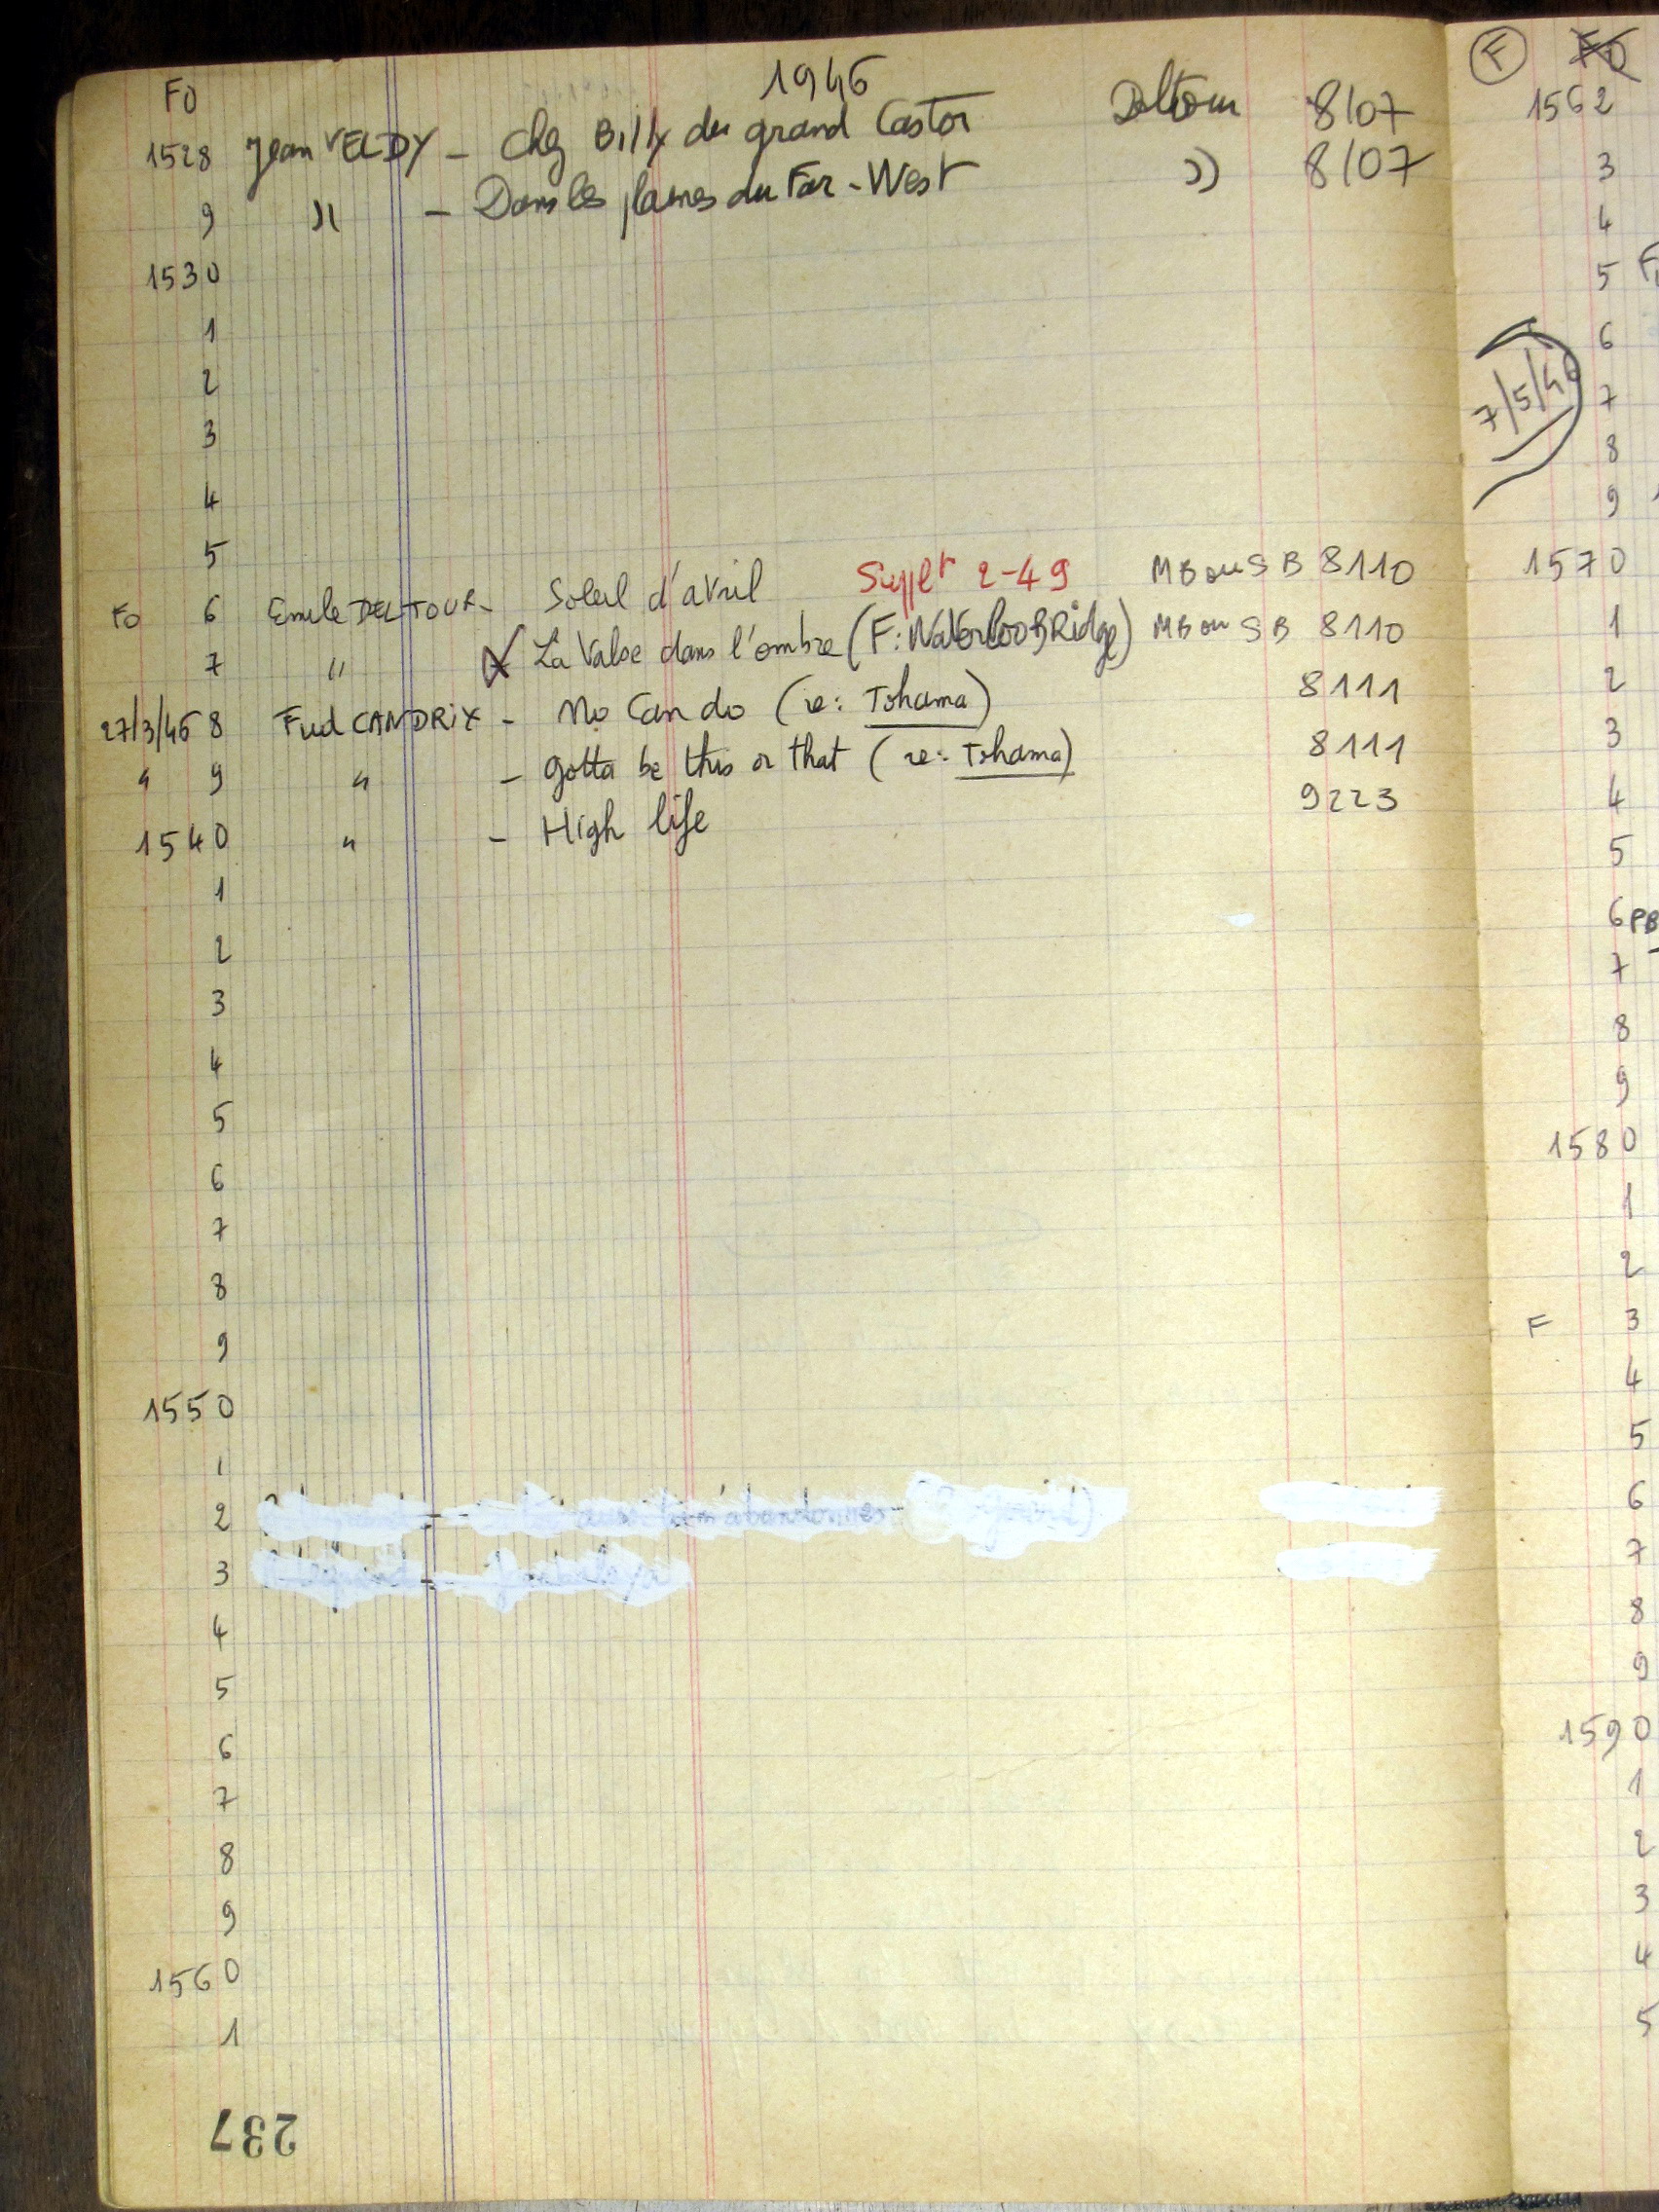 1946
FO
1528 Jean VELDY - Chez Billy du grand Castor Deltour 8107
9 " - Dans les plaines du Far-West " 8107
1530
1
2
3
4
5
FO 6 Emile DELTOUR - Soleil d'avril Supplt 2-49 MB ou SB 8110
7 " X La Valse dans l'ombre (F: Waterloo BRidge) MB ou SB 8110
27/3/46 8 Fud CANDRIX - No Can do (re: Tohama) 8111
" 9 " - gotta be this or that (re: Tohama) 8111
1540 " - High life 9223
1
2
3
4
5
6
7
8
9
1550
1
2 m'abandonnes
3
4
5
6
7
8
9
1560
1
237
F FO
1562
3
4
5
6
7/5/46
7
8
9
1570
1
2
3
4
5
6 PB
7
8
9
1580
1
2
F 3
4
5
6
7
8
9
1590
1
2
3
4
5